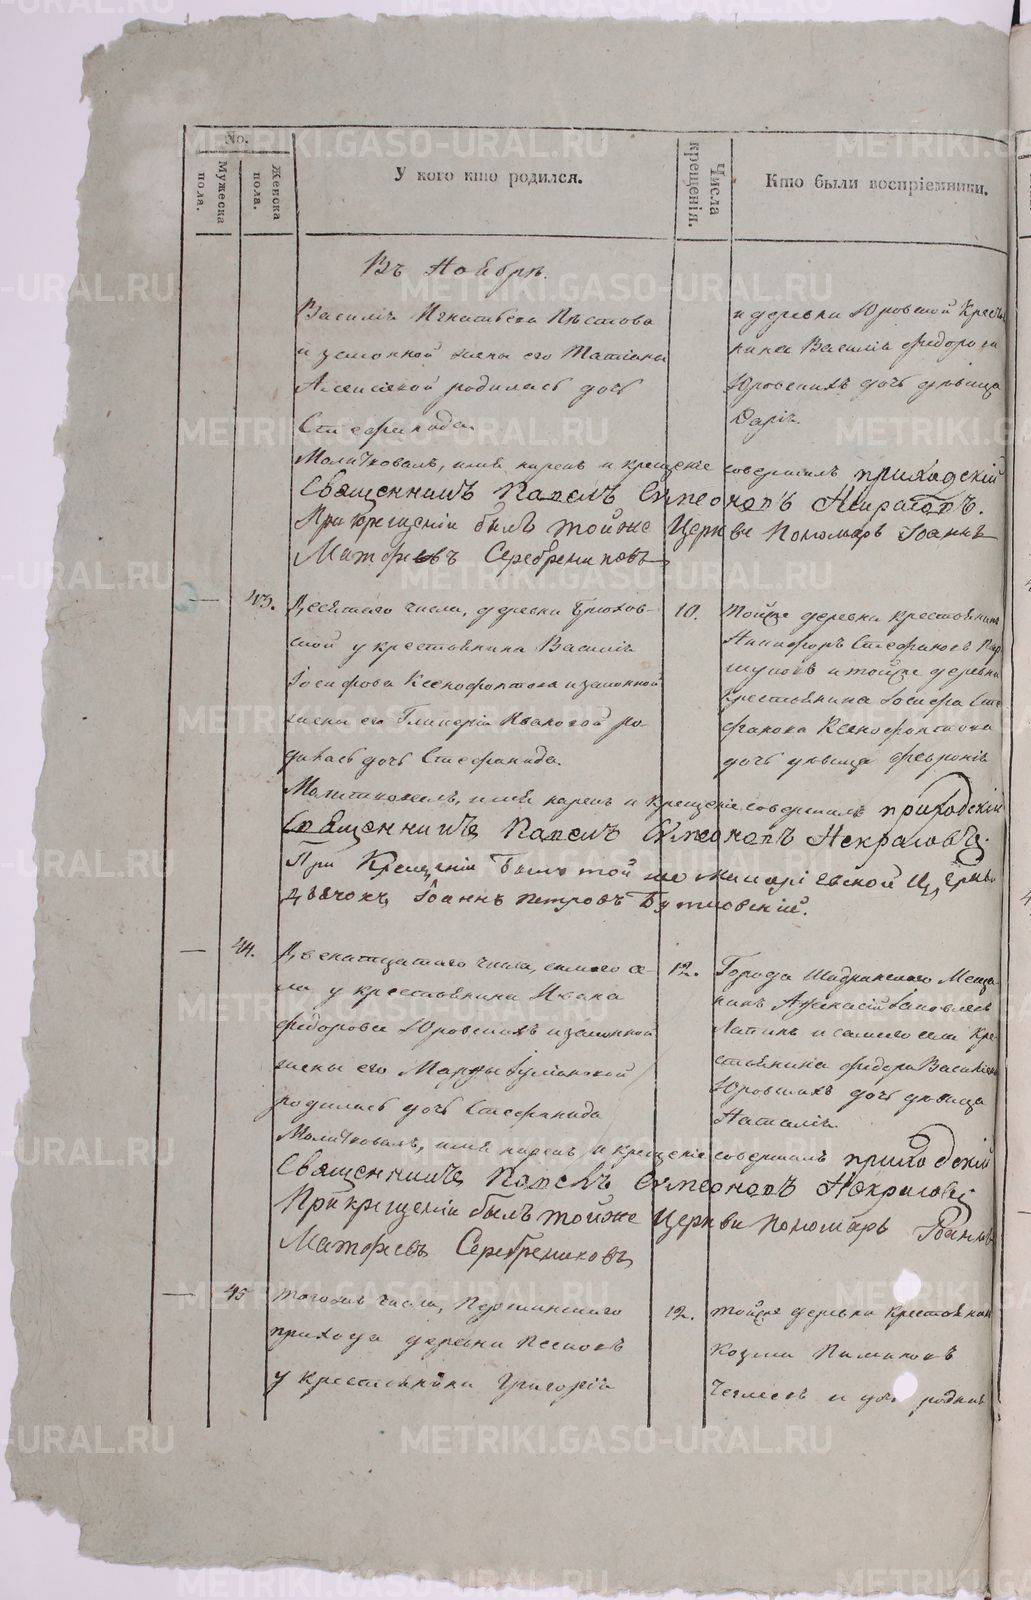 No.
Мужеска пола.
Женска пола.
У кого кто родился.
Числа крещенія.
Кто были воспріемники.
Въ Ноябрѣ.
Василія Игнатьева
и законной жены его Татіаны
Алексѣевой родилась дочь
Стефанида.
и деревни Юровской Кресть
нина Василія Федорова
Юровскихъ дочь дѣвица
Дарія.
Молитвовалъ, имя нарекъ и крещеніе совершилъ приходскій
Священникъ Павелъ Симеоновъ Некрасовъ.
При крещеніи былъ тойже Церкви Пономарь Іоаннъ
Матфіевъ Серебрениковъ
43.
Десятаго числа, деревни Брюхов-
ской у крестьянина Василія
Іосифова Ксенофонтова и законной
жены его Гликеріи Ивановой ро
дилась дочь Стефанида.
10.
Тойже деревни крестьянинъ
Никифоръ Стефановъ Пар
шуковъ и тойже деревни
Крестьянина Іосифа Сте
фанова Ксенофонтова
дочь дѣвица Февронія
Молитвовалъ, имя нарекъ и крещеніе совершилъ приходскій
Священникъ Павелъ Симеоновъ Некрасовъ.
При Крещеніи былъ той же Церкви
Дьячокъ Іоаннъ Петровъ Бутковскій.
44.
Двенатцатаго числа, самаго се-
ла, у крестьянина Ивана
Федорова Юровскихъ и законной
жены его Марѳы
родилась дочь Стефанида
12.
Города Шадринскаго Меща-
нинъ Афанасій Яковлевъ
Лапинъ и самаго села Кре-
стьянина Федора Василіева
Юровскихъ дочь дѣвица
Наталія.
Молитвовалъ, имя нарекъ, и крещеніе совершилъ приходскій
Священникъ Павелъ Симеоновъ Некрасовъ
При крещеніи былъ тойже Церкви Пономарь Іоаннъ
Матфіевъ Серебрениковъ
45
Тогоже числа,
прихода деревни Песковъ
у крестьянина Григорія
12.
Тойже деревни Крестьянинъ
Козма
и родная
METRIKI.GASO-URAL.RU